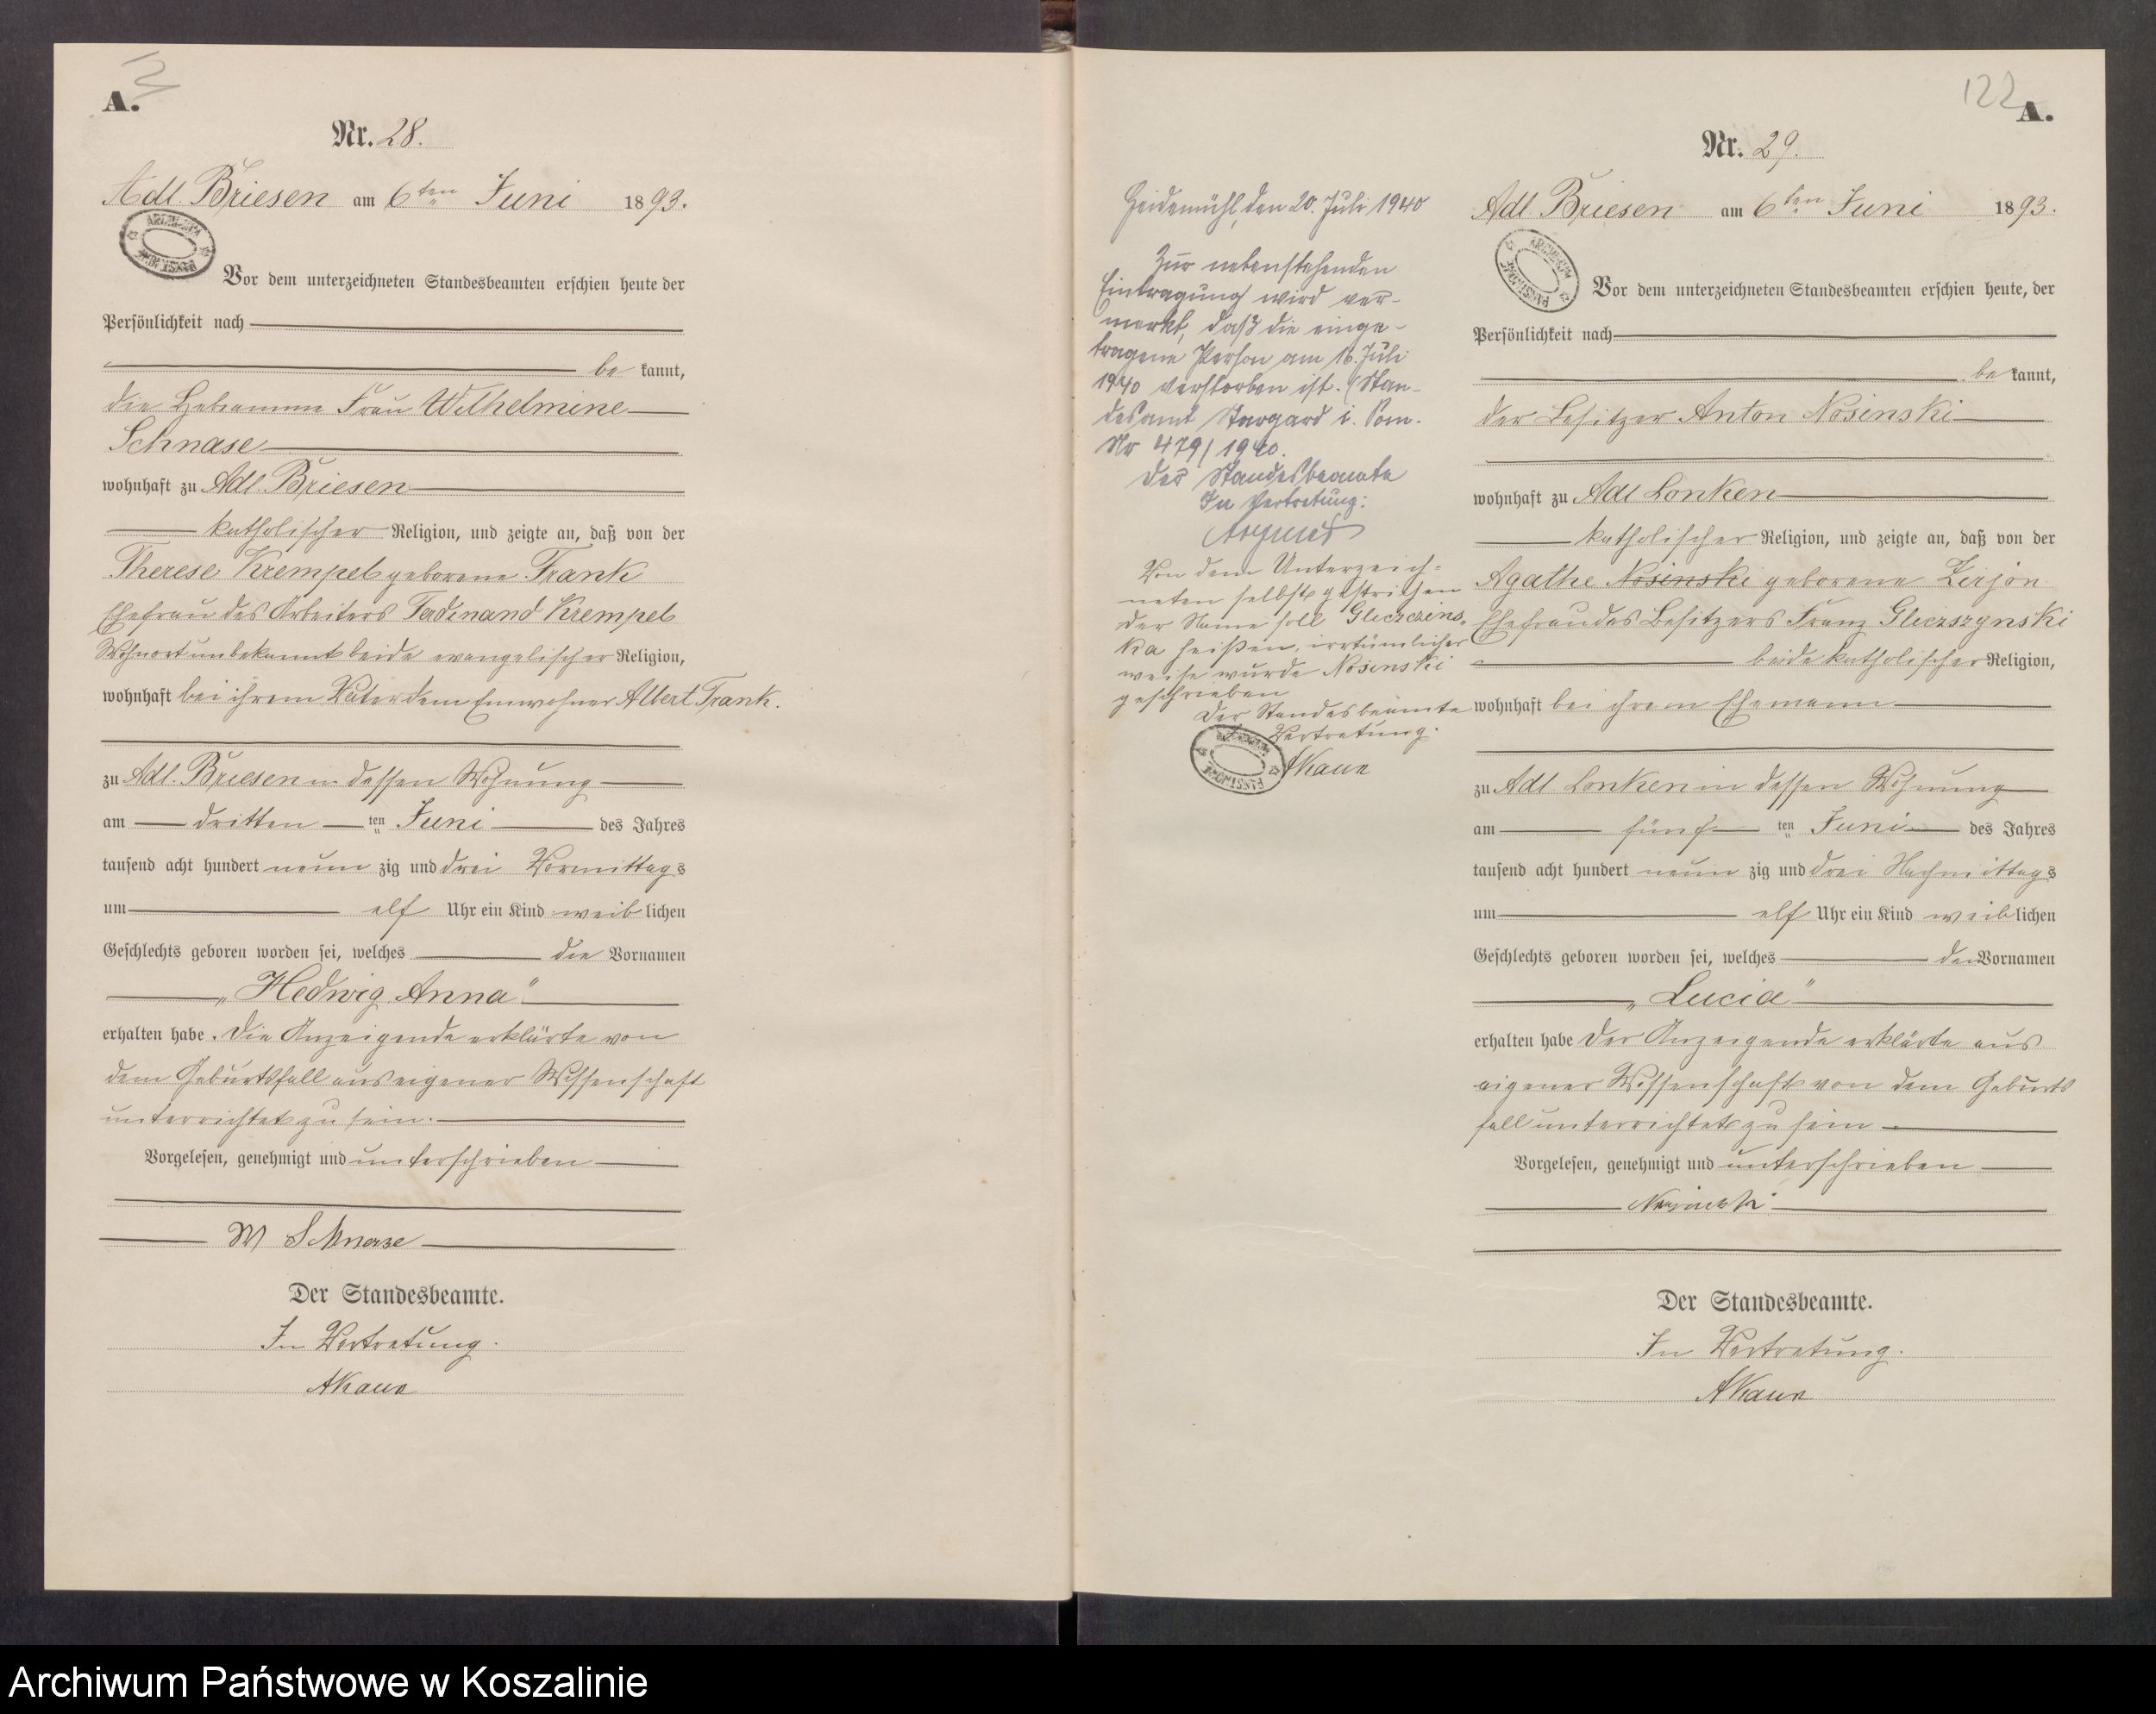 A.
Nr. 28.
Adl. Briesen am 6ten Juni 1893.
Vor dem unterzeichneten Standesbeamten erschien heute der
Persönlichkeit nach
be kannt,
die Hebamme Frau Wilhelmine
Schnase
wohnhaft zu Adl. Briesen
katholischer Religion, und zeigte an, daß von der
Therese Krempel geborene Frank
Ehefrau des Arbeiters Ferdinand Krempel
Wohnort unbekannt beide evangelischer Religion,
wohnhaft bei ihrem Vater dem Einwohner Albert Frank.
zu Adl. Briesen in dessen Wohnung
am dritten ten Juni des Jahres
tausend acht hundert neun zig und drei Vormittags
um elf Uhr ein Kind weiblichen
Geschlechts geboren worden sei, welches die Vornamen
„Hedwig Anna"
erhalten habe. Die Anzeigende erklärte von
dem Geburtsfall aus eigener Wissenschaft
unterrichtet zu sein.
Vorgelesen, genehmigt und unterschrieben
W Schnase
Der Standesbeamte.
In Vertretung.
122
A.
Heidemühl, den 20. Juli 1940
Zur nebenstehenden
Eintragung wird ver-
merkt, daß die einge-
tragene Person am 16. Juli
1940 verstorben ist. (Stan-
desamt Stargard i. Pom.
Nr 479/1940.
Der Standesbeamte
In Vertretung:
Von dem Unterzeich-
neten selbst gestrichen
der Name soll Gliczczins-
ka heißen, irrtümlicher
weise wurde Nosinski
geschrieben
Der Standesbeamte
Vertretung.
Nr. 29.
Adl. Briesen am 6ten Juni 1893.
Vor dem unterzeichneten Standesbeamten erschien heute, der
Persönlichkeit nach
be kannt,
der Besitzer Anton Nosinski
wohnhaft zu Adl Lonken
katholischer Religion, und zeigte an, daß von der
Agathe Nosinski geborene Zirjon
Ehefrau des Besitzers Franz Gliczszynski
beide katholischer Religion,
wohnhaft bei ihrem Ehemann
zu Adl Lonken in dessen Wohnung
am fünf ten Juni des Jahres
tausend acht hundert neun zig und drei Nachmittags
um elf Uhr ein Kind weiblichen
Geschlechts geboren worden sei, welches den Vornamen
„Lucia"
erhalten habe Der Anzeigende erklärte aus
eigener Wissenschaft von dem Geburts
fall unterrichtet zu sein
Vorgelesen, genehmigt und unterschrieben
Der Standesbeamte.
In Vertretung.
Archiwum Państwowe w Koszalinie